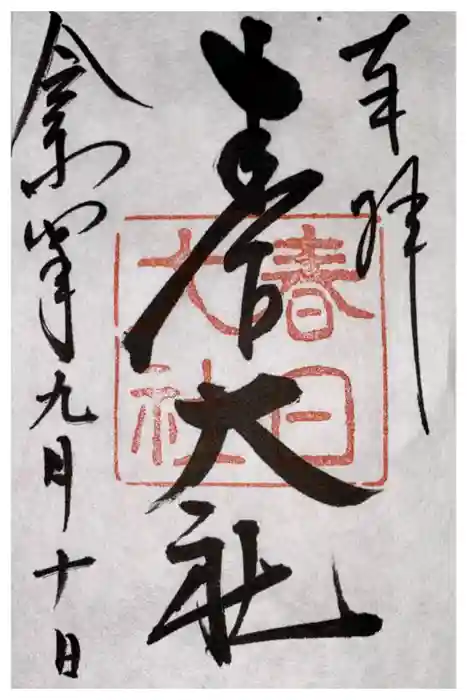 奉拝
春日大社
春日
大社
令和四年九月十日